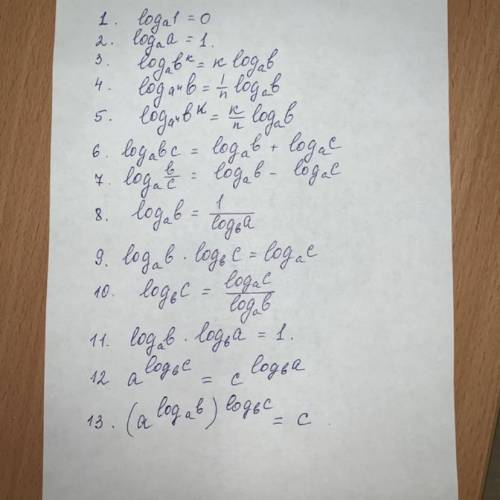 1. logₐ1 = 0
2. logₐa = 1.
3. logₐbᵏ = k logₐb
4. logₐⁿb = 1/n logₐb
5. logₐⁿbᵏ = k/n logₐb
6. logₐbc = logₐb + logₐc
7. logₐ b/c = logₐb - logₐc
8. logₐb = 1/log_b a
9. logₐb · log_b c = logₐc
10. log_b c = logₐc/logₐb
11. logₐb · log_b a = 1.
12 a^(log_b c) = c^(log_b a)
13. (a^(logₐb))^(log_b c) = c